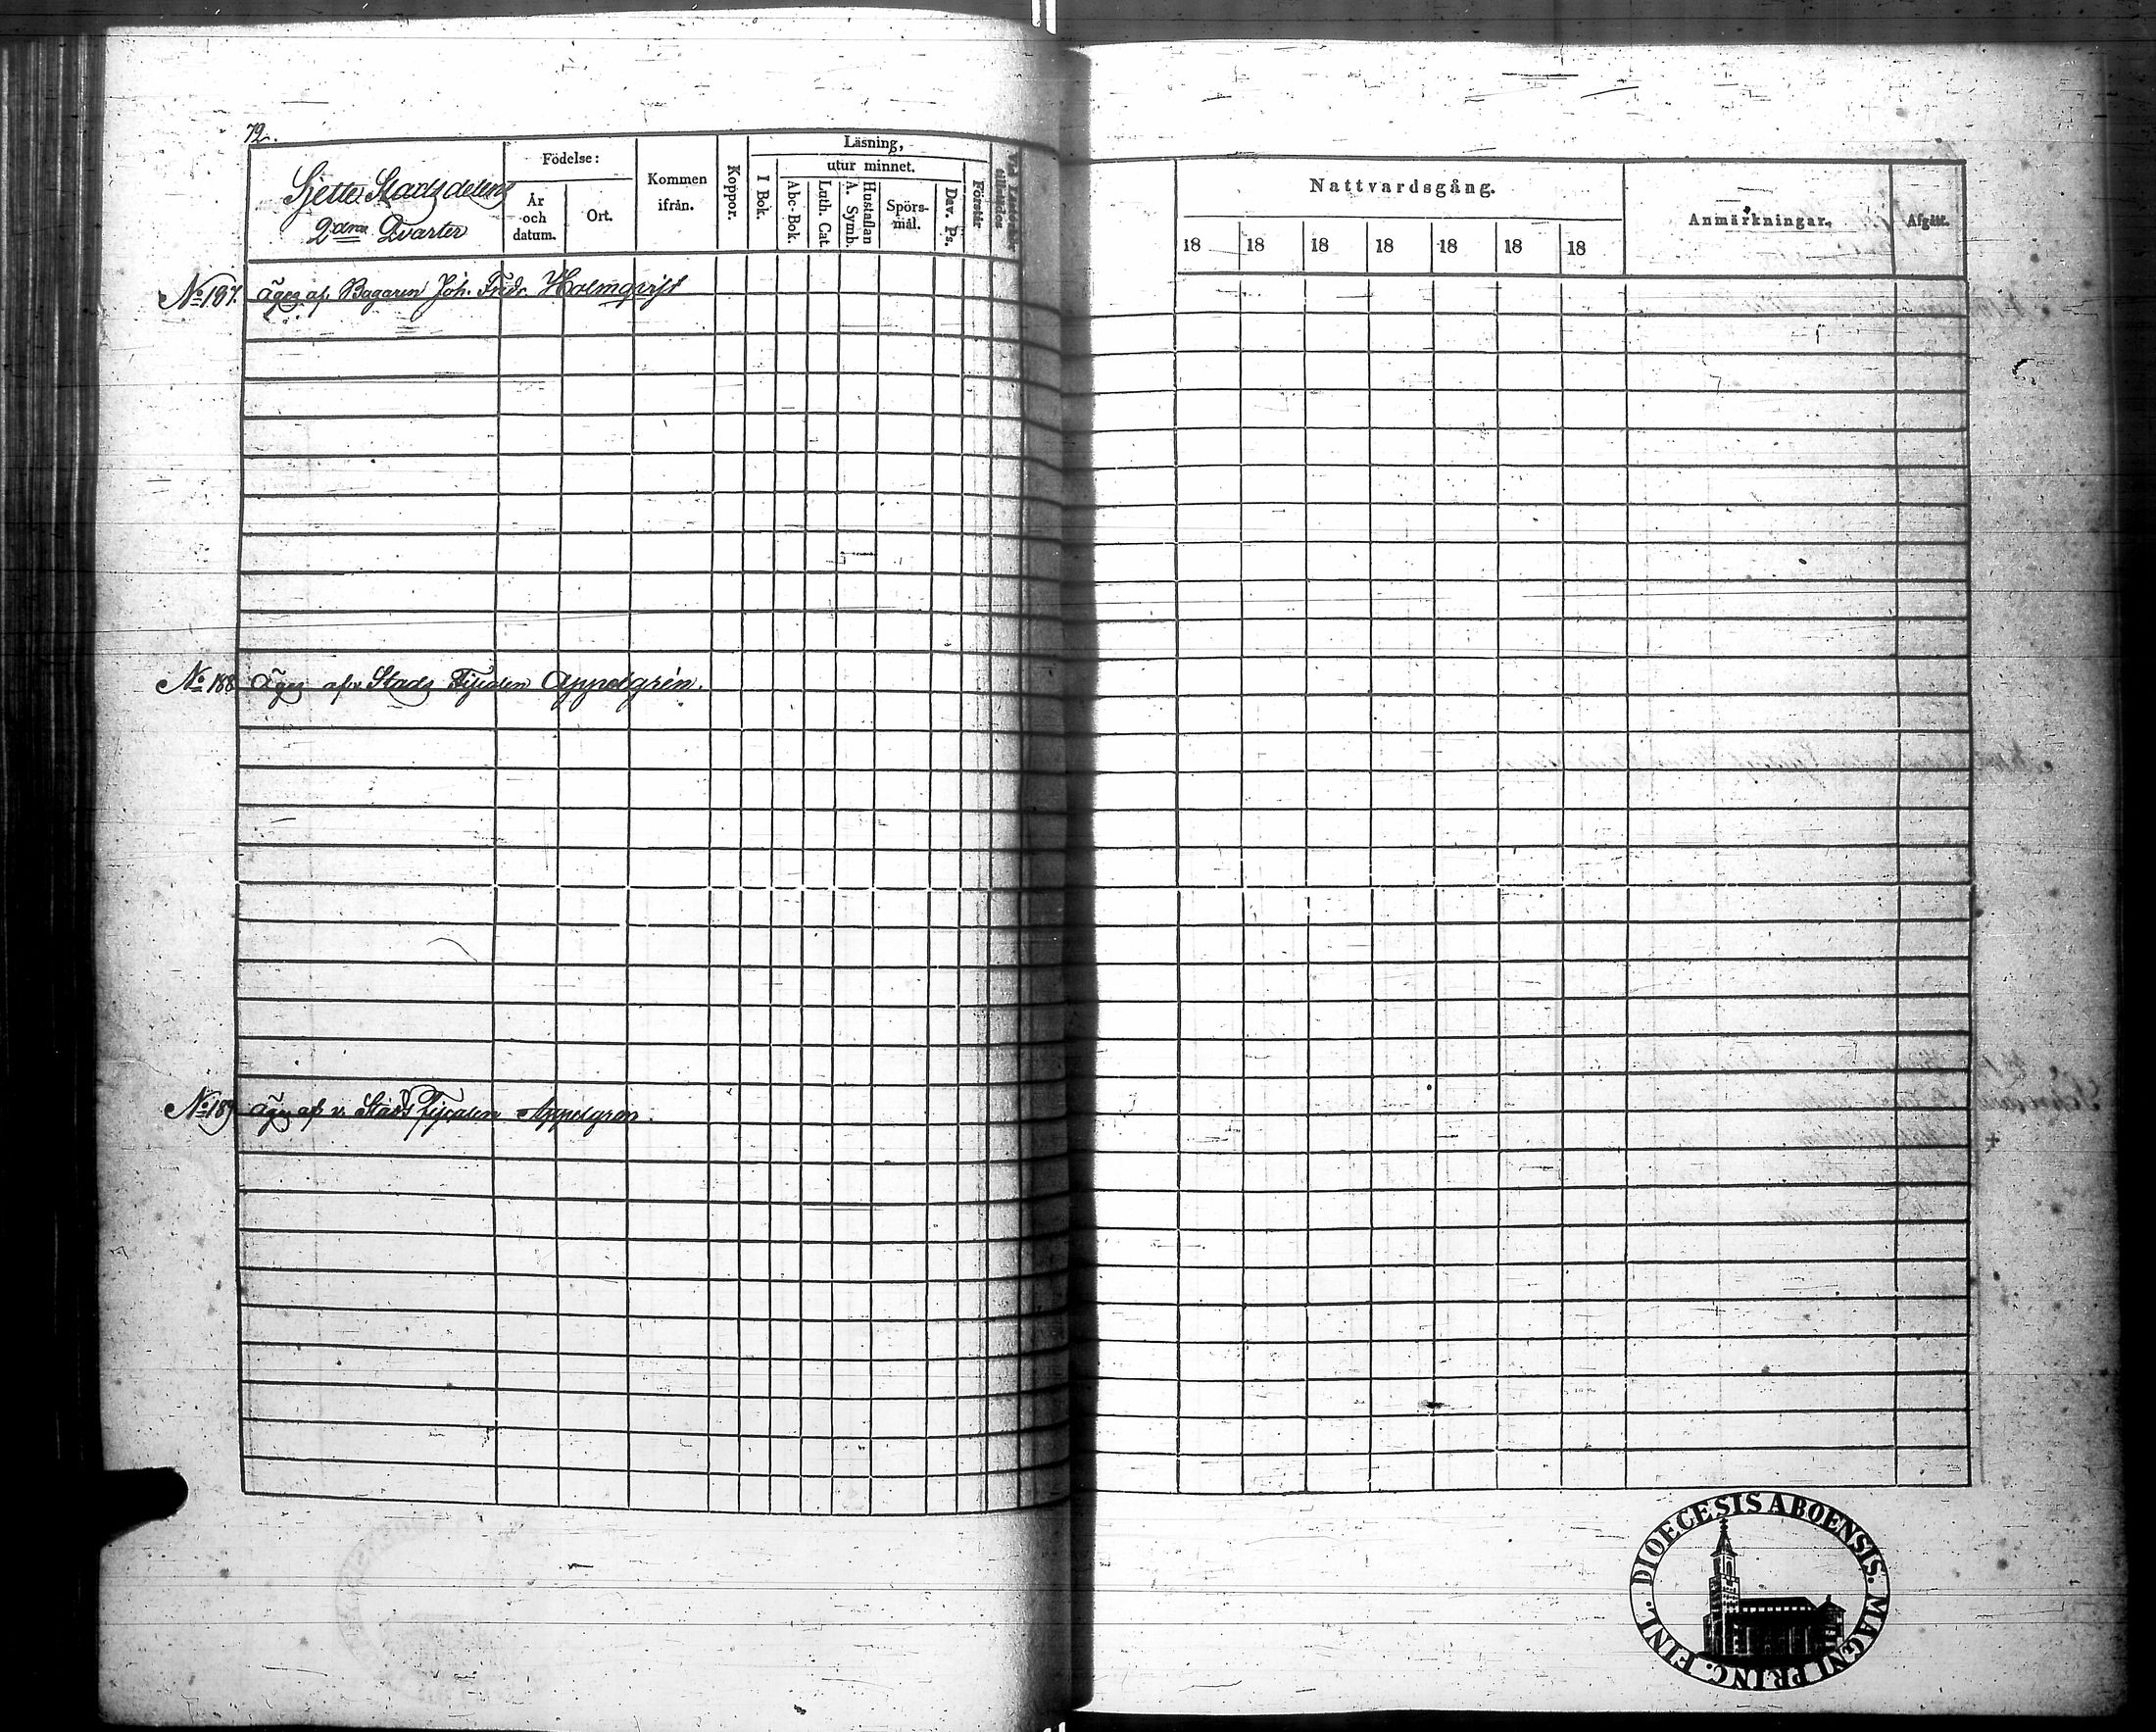 72.
Sjette Stadsdelens
2dra Qvarter
Födelse:
År
och
datum.
Ort.
Kommen
ifrån.
Koppor.
Läsning,
utur minnet.
I Bok.
Abc-Bok.
Luth. Cat.
Hustaflan
A. Symb.
Spörs-
mål.
Dav. Ps.
Förstår
Nattvardsgång.
18 18 18 18 18 18 18
Anmärkningar.
Afgått.
No 187. Äges af Bagaren Joh. Fredr. Holmqvist
No 188 Äges af v. Stads Fiscalen Appelgrén.
No 189 Äges af v. Stads Fiscalen Appelgren.
DIOECESIS ABOENSIS. MAGNI PRINC. FINL.